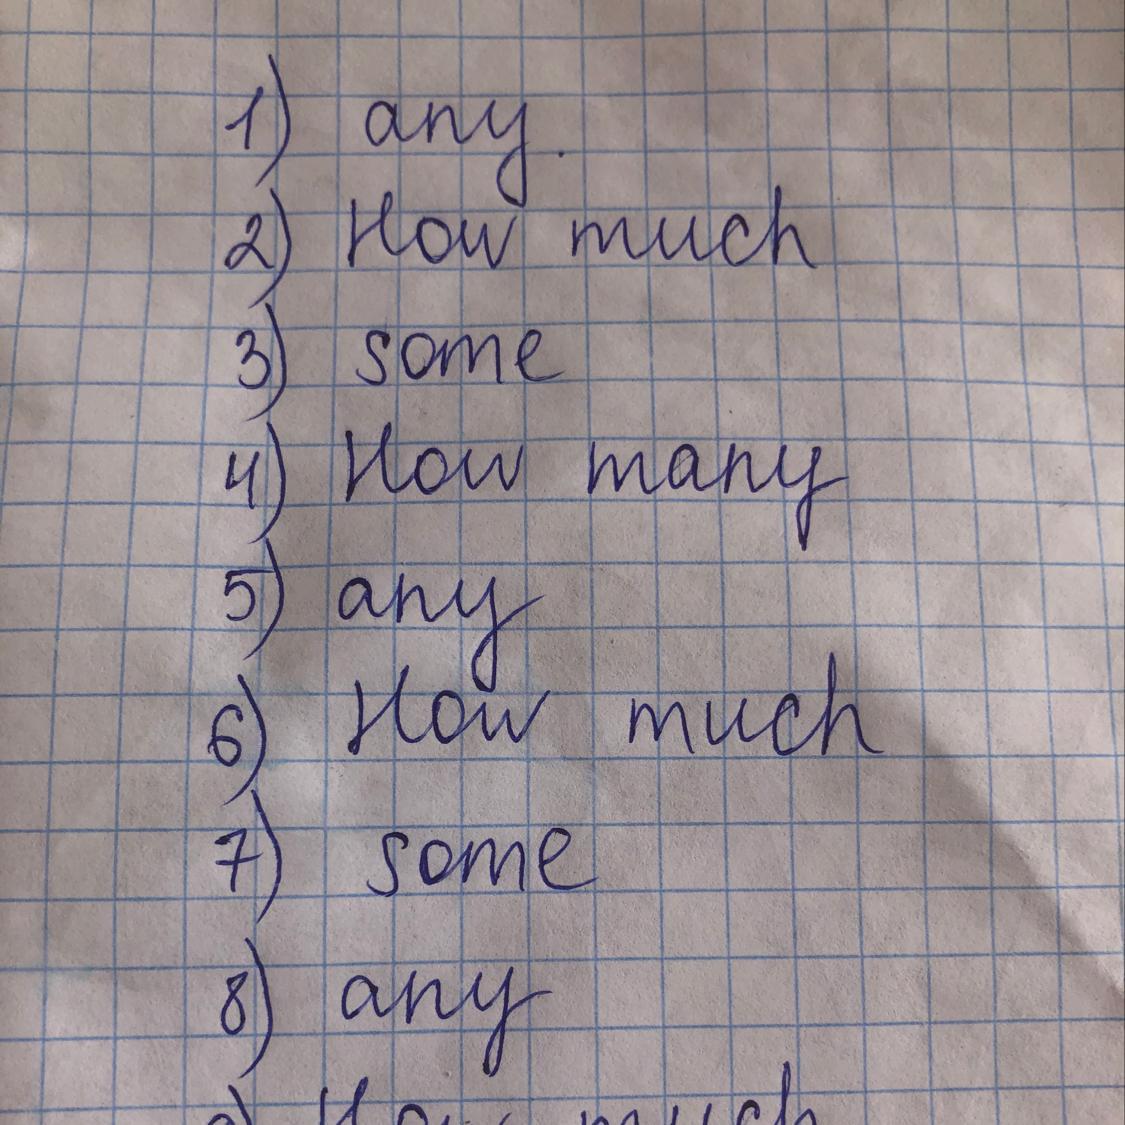 1) any.
2) How much
3) some
4) How many
5) any
6) How much
7) some
8) any
9) How much